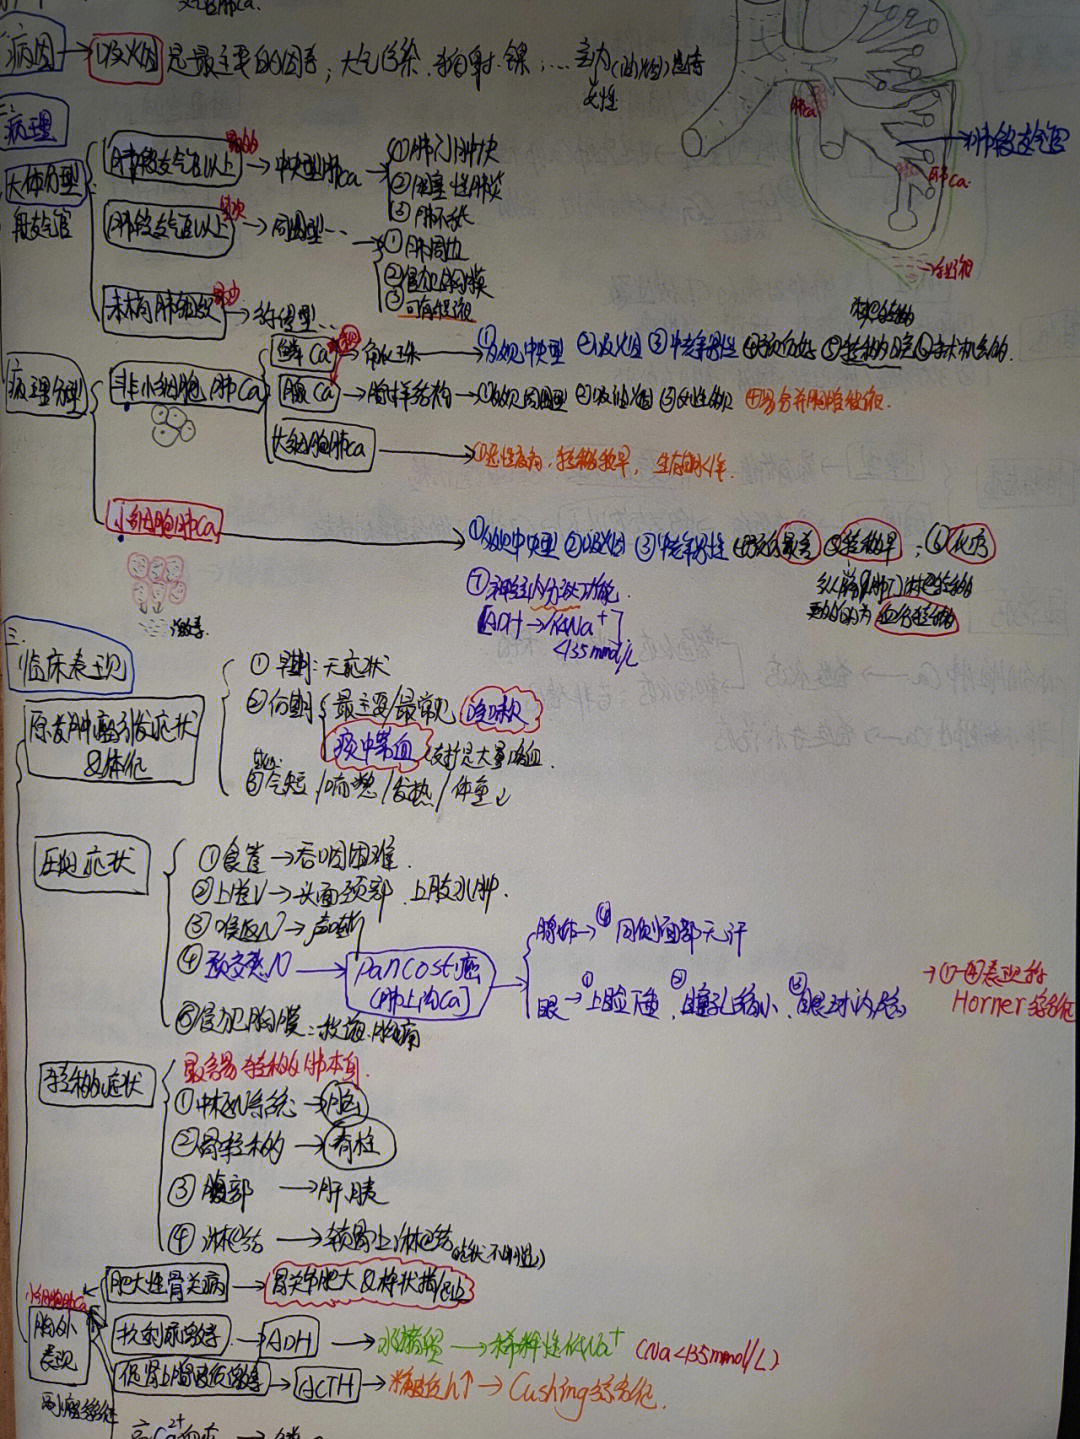 病因 → 吸烟 是最主要的因素；大气污染、辐射、镍；… 室内(油烟)遗传
女性
二、病理
大体分型
段支气管
肺段支气管以上 → 中央型肺Ca → ①肺门肿块
②阻塞性肺炎
③肺不张
肺段支气管以上 → 周围型… → ①肺周边
②侵犯胸膜
③可有胸腔积液
肺Ca
肺段支气管
末梢肺组织 → 弥漫型…
病理分型
非小细胞肺Ca
鳞Ca → 角化珠 → ①多见中央型 ②吸烟 ③中老年男性 ④预后好 ⑤转移 ⑥手术机会多
腺Ca → 腺样结构 → ①多见周围型 ② ③女性 ④易合并胸腔积液
大细胞肺Ca → 恶性度高,转移较早,
小细胞肺Ca → ①多见中央型 ②吸烟 ③中老年男性 ④预后最差 ⑤转移早；⑥化疗
⑦神经内分泌功能
纵隔肺门淋巴转移
血行转移
[ADH→低Na⁺]
<135mmol/L
激素
三、
临床表现
原发肿瘤引发症状
&体征
①早期：无症状
②后期 最主要/最常见 咳嗽
痰中带血 大量咯血.
③气短/喘憋/发热/体重↓
压迫症状
①食管→吞咽困难.
②上腔V→头面颈部、上肢水肿.
③喉返N→声嘶
④颈交感N → pancost癌
(肺上沟Ca)
腺体→④同侧面部无汗
眼→①上睑下垂、②瞳孔缩小、③眼球内陷
→①-④表现称
Horner综合征
⑤侵犯胸膜：胸痛
转移症状
最容易转移 肺本身.
①中枢N系统→脑
②骨转移→脊柱
③腹部 → 肝胰
④淋巴结 → 锁骨上淋巴结
小细胞肺Ca
胸外
表现
副瘤综合征
肥大性骨关病 → 骨关节肥大&杵状指/趾
抗利尿激素 → ADH → 水潴留 → 稀释性低Na⁺ (Na<135mmol/L)
促肾上腺皮质激素 → ACTH → 糖皮质h↑ → Cushing综合征.
高Ca²⁺血症 →